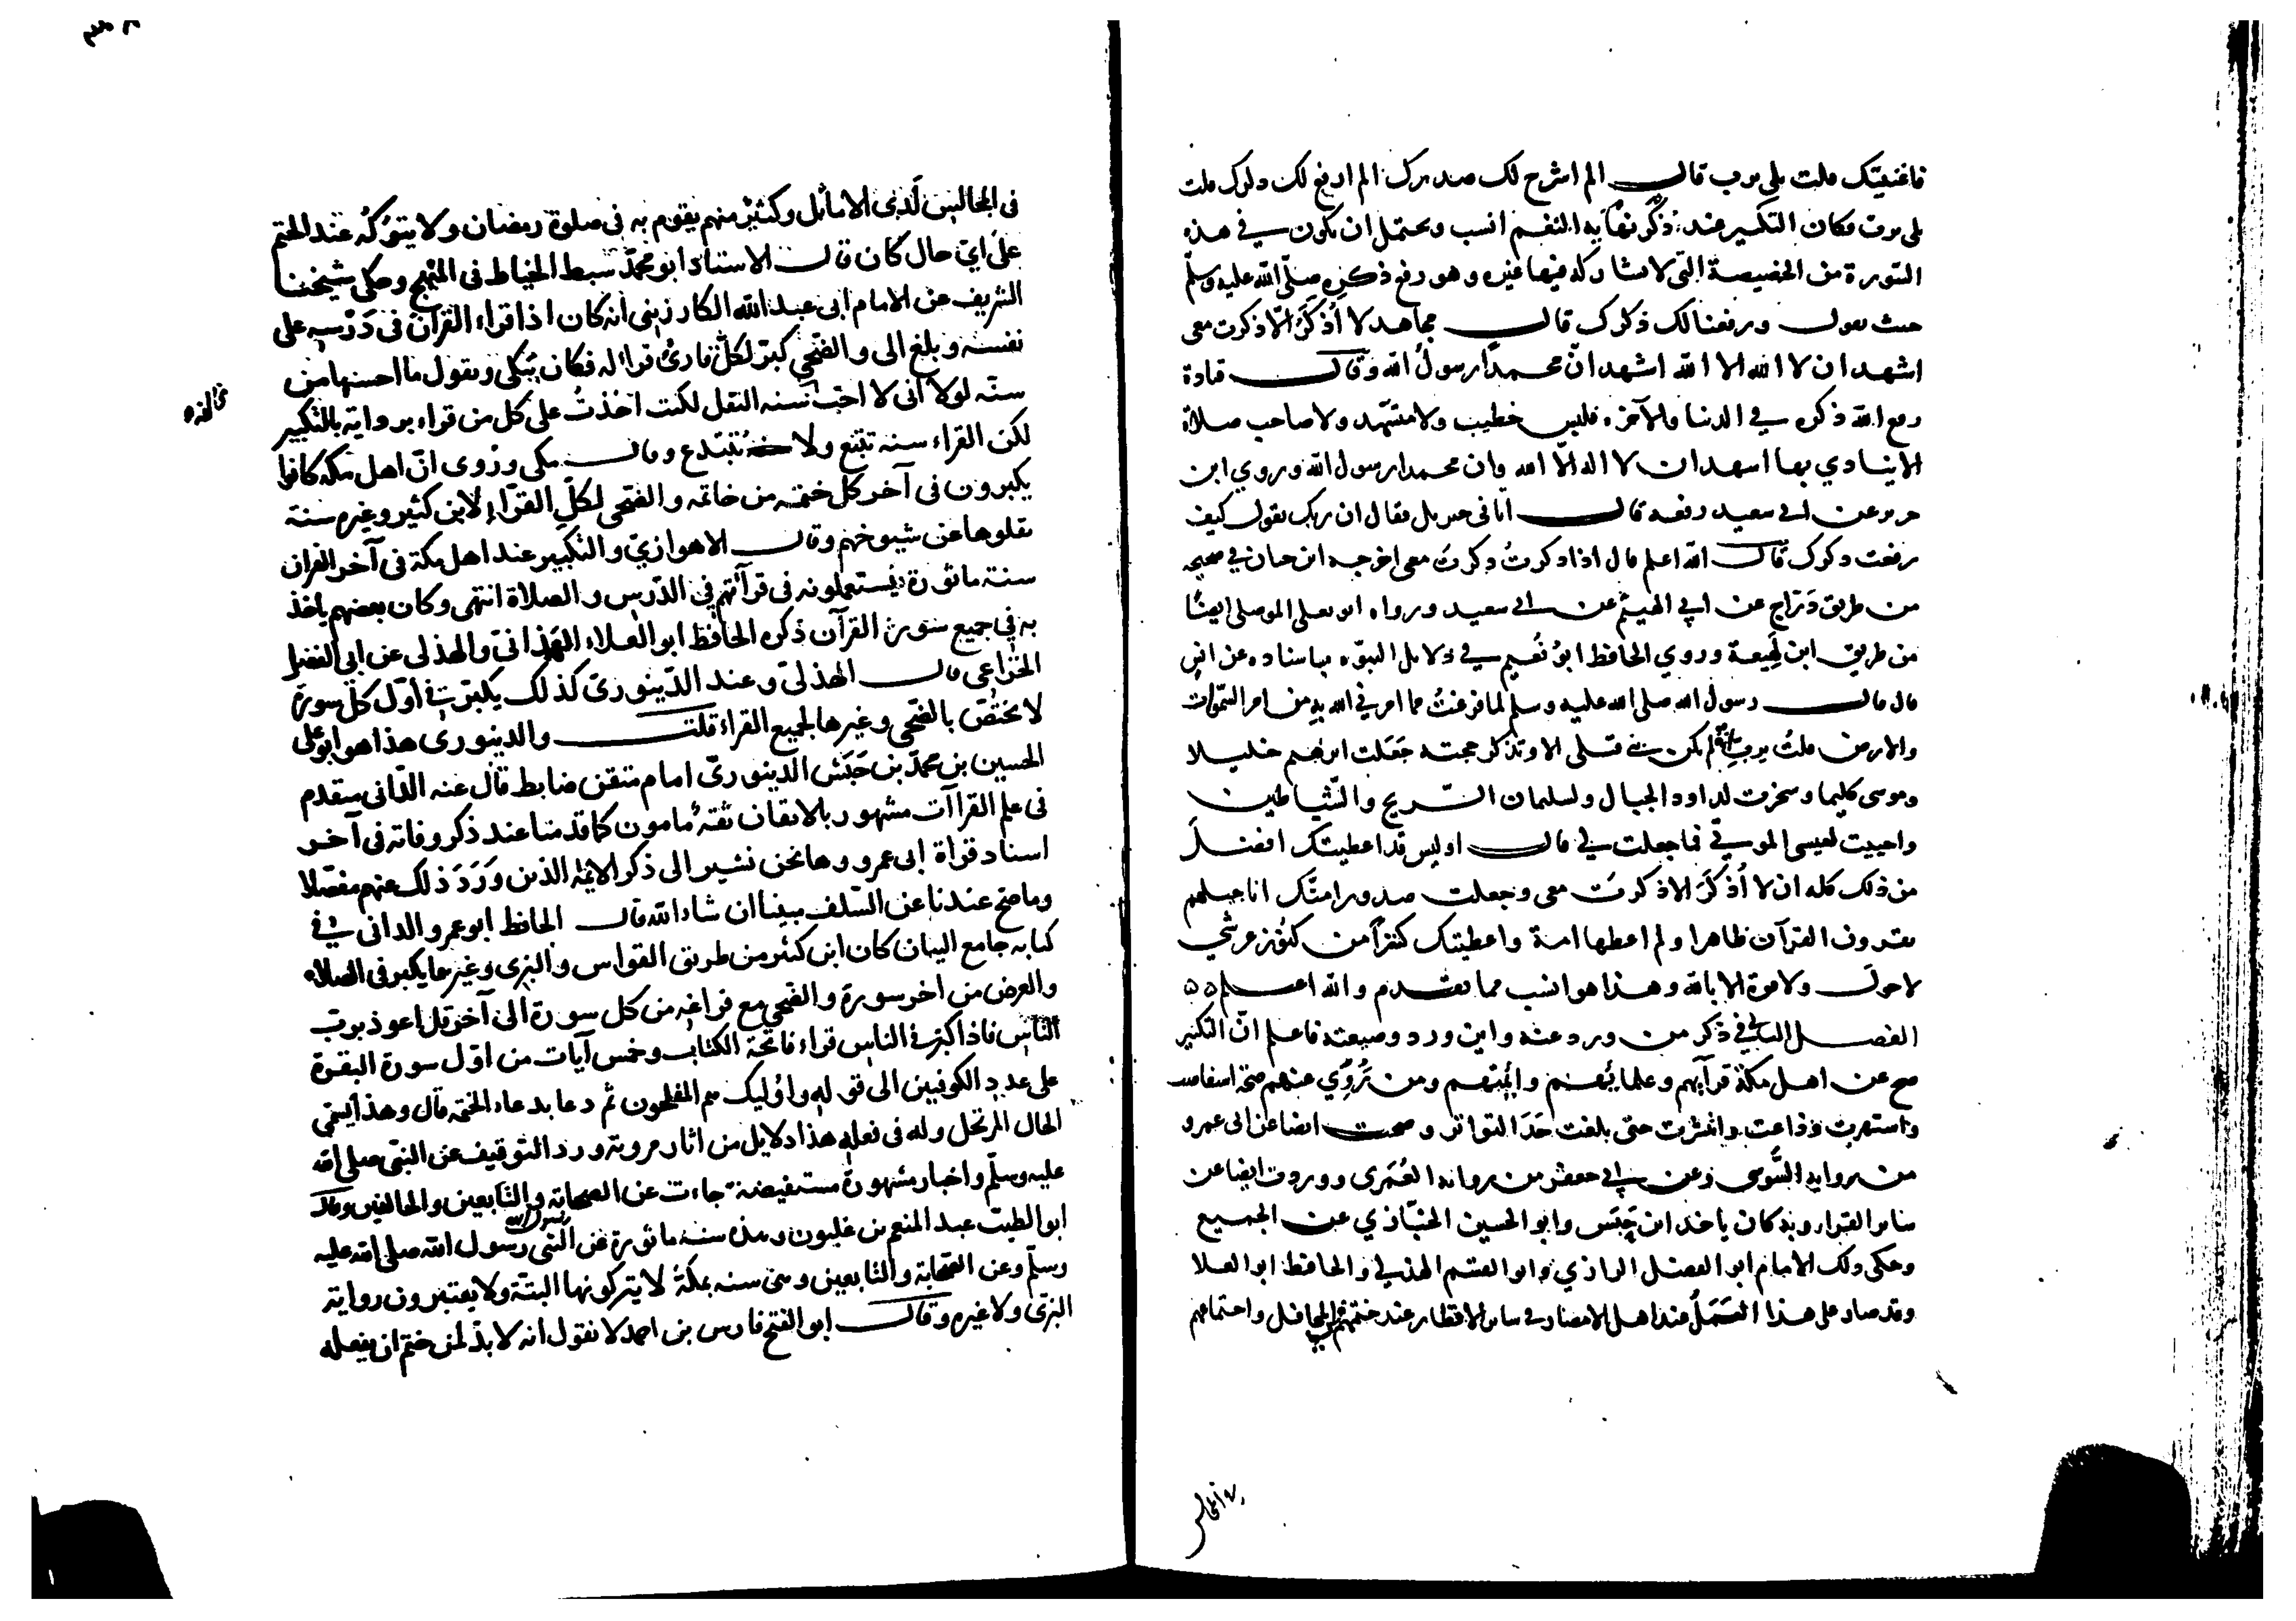 فاغنيتك قلت بلى يرب قال الم اشرح لك صدرك الم ارفع لك ذكرك قلت
بلى يرب فكان التكبير عند ذكر نهاية النعم انسب ويحتمل ان يكون في هذه
السورة من الخصيصة التي لا يشاركه فيها غيره وهو رفع ذكره صلّى الله عليه وسلّم
حيث يقول ورفعنا لك ذكرك قال مجاهد لا اُذكَرُ الّا ذكرت معي
اشهد ان لا اله الا الله اشهد انّ محمدًا رسولُ الله وقال قتادة
رفع الله ذكره في الدنيا والآخرة فليس خطيب ولا متشهّد ولا صاحب صلاة
الا ينادي بها اشهد ان لا اله الّا الله وان محمدا رسول الله وروي ابن
جرير عن ابي سعيد رفعه قال اتاني جبريل فقال ان ربك يقول كيف
رفعت ذكرك قال الله اعلم قال اذا ذكرتُ ذكرتَ معي اخرجه ابن حبان في صحيحه
من طريق دَرّاج عن ابي الهيثم عن ابي سعيد ورواه ابو يعلى الموصلي ايضًا
من طريق ابن لَهيعة وروي الحافظ ابو نُعيم في دلايل النبوّه باسناده عن انس
قال قال رسول الله صلى الله عليه وسلم لما فرغتُ مما امرني الله به من امر السّموات
والارض قلتُ يرب انه لم يكن نبي قبلي الا وتذكر حجته جَعَلت ابرهيم خليلا
وموسى كليما وسخرت لداود الجبال ولسليمان الرّيح والشّياطين
واحييت لعيسى الموتى فما جعلت لي قال اوليس قد اعطيتك افضلَ
من ذلك كله ان لا اُذكَرَ الا ذكرتَ معي وجعلت صدور امتّك اناجيلهم
يقرءون القرآن ظاهرا ولم اعطها امة واعطيتك كنزاً من كنوز عرشي
لا حولَ ولا قوة الا بالله وهذا هو انسب مما تقدم والله اعلم
الفصل الثاني في ذكر من ورد عنه واين ورد وصيغته فاعلم انّ التكبير
صح عن اهل مكّة قرّآيهم وعلمايُهم وائمّتهم ومن رَوَي عنهم صحّة استفاضت
واستهرت وذاعت وانتشرت حتى بلغت حَدّ التواتر وصحت ايضا عن ابي عمرو
من رواية السُّوسي وعن ابي جعفر من رواية العُمَري ووردت ايضا عن
ساير القراء وبه كان ياخذ ابن حَبَش وابو الحسين الخبّازي عن الجميع
وحكى ذلك الامام ابو الفضل الرازي وابو القسم الهذلي والحافظ ابو العلا
وقد صار على هذا العَمَلُ عند اهل الامصار في ساير الاقطار عند ختمهم في المحافل واجتماعهم
في المجالس لَدَى الاماثل وكثيرٌ منهم يقوم به في صلوة رمضان ولا يتركُه عند الختم
على ايّ حال كان قال الاستاذ ابو محمّد سبط الخياط في المبهج وحكى شيخنا
الشريف عن الامام ابي عبد الله الكارزيني انه كان اذا قراء القرآن في دَرْسِه على
نفسه وبلغ الى والضّحي كبّر لكلّ قارئٍ قراء له فكان يَبْكي ويقول ما احسنها من
سنّه لولا اني لا احبّ سنه النقل لكنت اخذتُ على كل من قراء برواية بالتكبير
لكن القراء سنه تتبع ولا تبتدع وقال مكي ورُوى انّ اهل مكه كانوا
يكبرون في آخر كل ختمه من خاتمه والضّحي لكلّ القرّاءِ لابن كثير وغيره سنة
نقلوها عن شيوخهم وقال الاهوازيّ والتكبير عند اهل مكة في آخر القران
سنة ماثورة يستعملونه في قرآئتهم في الدّرس والصلاة انتهى وكان بعضهم ياخذ
به في جميع سور القرآن ذكره الحافظ ابو العلاء الهَمذانيّ والهذلي عن ابي الفضل
الخزاعي قال الهذليّ وعند الدّينوريّ كذلك يكبّر في اوّل كلّ سورة
لا يختصّ بالضّحي وغيرها لجميع القراء قلت والدينوري هذا هو ابو علي
الحسين بن محمّد بن حَبَش الدينوريّ امام متقن ضابط قال عنه الدّاني متقدم
في علم القراآت مشهور بالاتقان ثقةٌ مامون كما قدمنا عند ذكر وفاته في آخر
اسناد قراة ابي عمرو وها نحن نشير الى ذكر الايمة الذين وَرَدَ ذلك عنهم مفصّلا
وما صحّ عندنا عن السّلف بينا ان شاء الله قال الحافظ ابو عمرو الداني في
كتابه جامع البيان كان ابن كثير من طريق القواس والبزى وغيرهما يكبر في الصلاه
والعرض من اخر سورة والضّحي مع فراغه من كل سورة الى آخر قل اعوذ برب
الناس فاذا كبّر في الناس قراء فاتحة الكتاب وخمس آيات من اوّل سورة البقرة
على عدد الكوفيين الى قوله واوُليك هم المفلحون ثم دعا بدعاء الختمة قال وهذا يسمّي
الحال المرتحل وله في فعله هذا دلايل من اثار مروية ورد التوقيف عن النبيّ صلى الله
عليه وسلّم واخبار مشهورة مستفيضة جاءت عن الصحابة والتابعين والخالفين وقال
ابو الطيب عبد المنعم بن غلبون وهذه سنه ماثورة عن النبي رسول الله صلى الله عليه
وسلّم وعن الصّحابة والتابعين وهي سنه بمكّة لا يتركونها البتّة ولا يعتبرون رواية
البزّي ولا غيره وقال ابو الفتح فارس بن احمد لا نقول انه لا بدّ لمن ختم ان يفعله